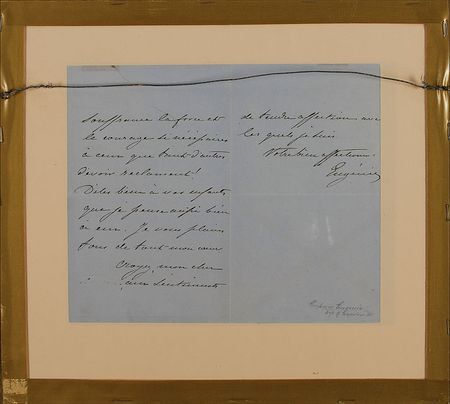 souffrance la force et
le courage si nécessaires
à ceux que tant d'autres
devoirs reclament!
Dites bien à vos enfants
que je pense aussi bien
à eux. Je vous plains
tous de tout mon cœur
Croyez, mon cher
aux sentiments
de tendre affection avec
les quels je suis
Votre bien affectionnée
Eugénie
Empress Eugenie